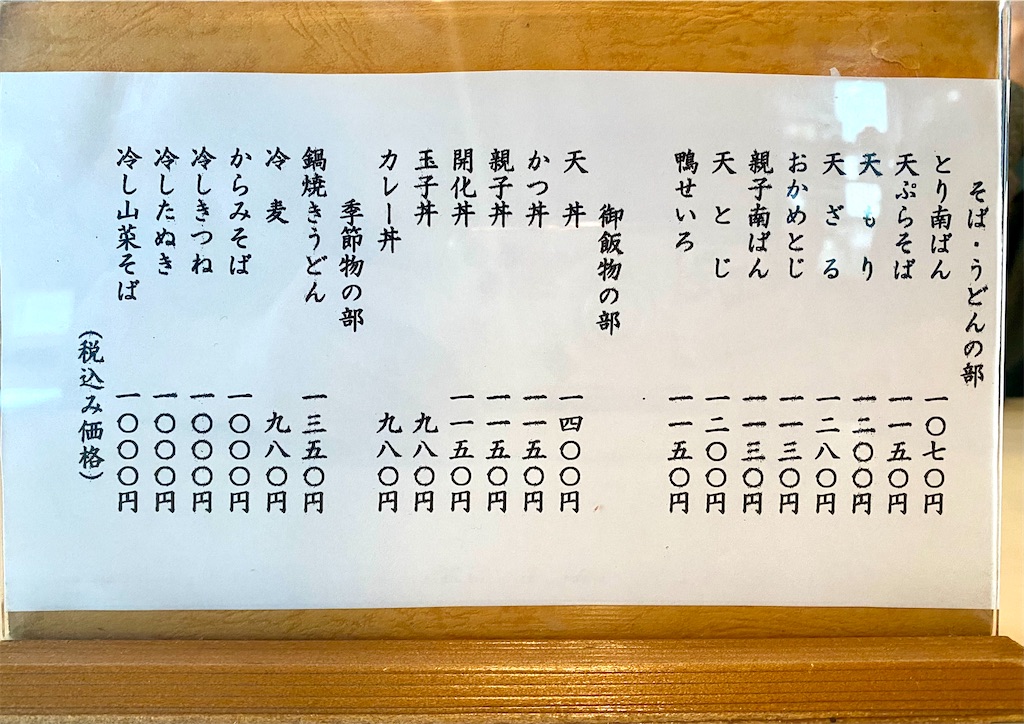 そば・うどんの部
とり南ばん 一〇七〇円
天ぷらそば 一一五〇円
天もり 一二〇〇円
天ざる 一二八〇円
おかめとじ 一一三〇円
親子南ばん 一一三〇円
天とじ 一二〇〇円
鴨せいろ 一一五〇円
御飯物の部
天丼 一四〇〇円
かつ丼 一一五〇円
親子丼 一一五〇円
開化丼 一一五〇円
玉子丼 九八〇円
カレー丼 九八〇円
季節物の部
鍋焼きうどん 一三五〇円
冷麦 九八〇円
からみそば 一〇〇〇円
冷しきつね 一〇〇〇円
冷したぬき 一〇〇〇円
冷し山菜そば 一〇〇〇円
(税込み価格)